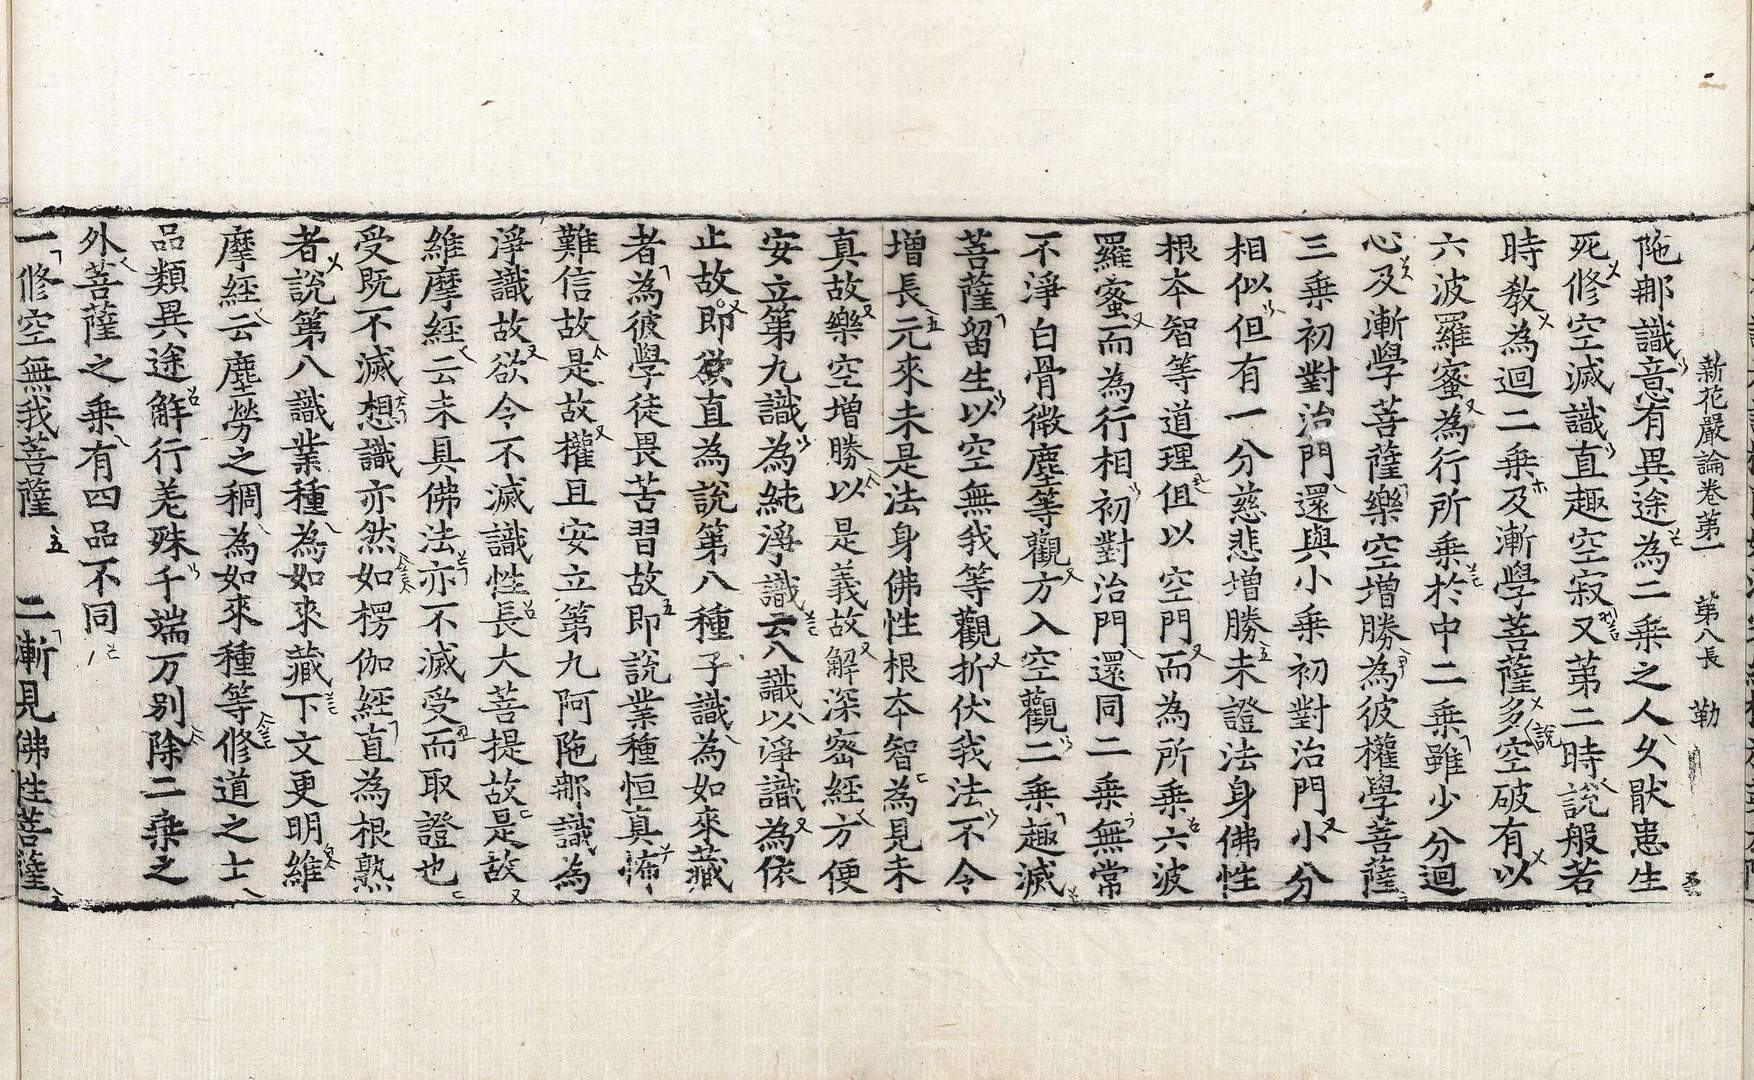 新花嚴論卷第一　第八長　勒
陁那識意有異途為二乘之人久猒患生
死修空滅識直趣空寂又第二時說般若
時教為迴二乘及漸學菩薩多空破有以
六波羅蜜為行所乘於中二乘雖少分迴
心及漸學菩薩樂空增勝為彼權學菩薩
三乘初對治門還與小乘初對治門小分
相似但有一分慈悲增勝未證法身佛性
根夲智等道理但以空門而為所乘六波
羅蜜而為行相初對治門還同二乘無常
不淨白骨微塵等觀方入空觀二乘趣滅
菩薩留生以空無我等觀折伏我法不令
增長元來未是法身佛性根夲智為見未
真故樂空增勝以是義故解深密經方便
安立第九識為純淨識云八識以淨識為依
止故即欲直為說第八種子識為如來藏
者為彼學徒畏苦習故即說業種恒真怖
難信故是故權且安立第九阿陁那識為
淨識故欲令不滅識性長大菩提故是故
維摩經云未具佛法亦不滅受而取證也
受既不滅想識亦然如楞伽經直為根熟
者說第八識業種為如來藏下文更明維
摩經云塵勞之稠為如來種等修道之士
品類異途解行差殊千端万別除二乘之
外菩薩之乘有四品不同
一修空無我菩薩　二漸見佛性菩薩